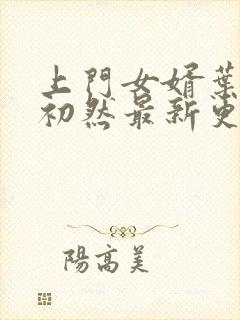 上門女婿葉
初然最新更
陽高美